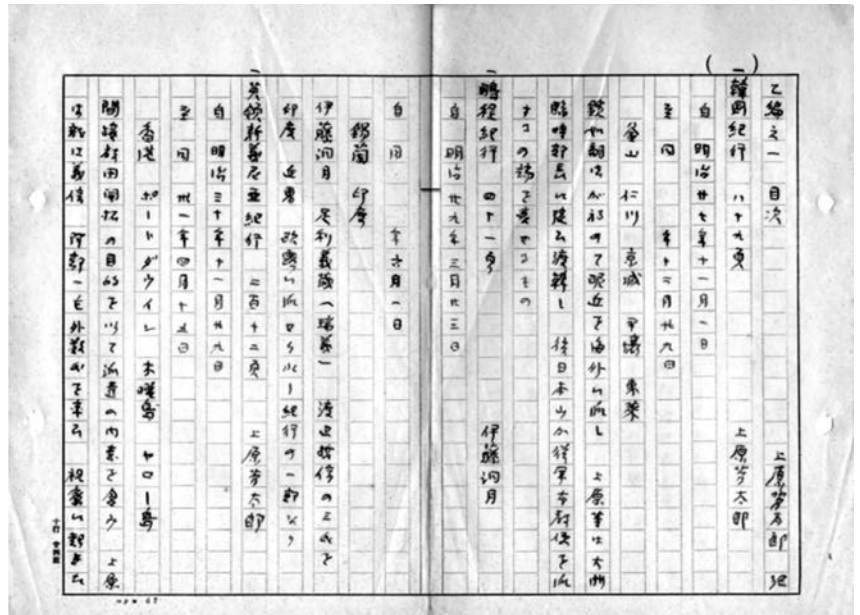 乙編之一 目次 上原芳太郎 記
一韓国紀行 八十九頁 上原芳太郎
自 明治廿七年十一月一日
至 同 年十二月廿九日
釜山 仁川 京城 平壌 東莱
鏡如猊下が初めて昵近を海外に派し 上原等は大洲
臨時部長に随ひ渡韓し 後日本山が従軍布教使を派
するの端を発せるもの
一鵬程紀行 四十一頁 伊藤洞月
自 明治廿九年三月廿三日
自 同 年六月一日
錫蘭 印度
伊藤洞月 足利義蔵(瑞義) 渡辺哲信の三氏を
印度 近東 欧露に派せられし紀行の一部なり
一英領新義尼亜紀行 二百十二頁 上原芳太郎
自 明治三十年十一月廿九日
至 同 卅一年四月十五日
香港 ポートダウイン 木曜島 ヤロー島
開拓の目的を以て派遣の内意を含み 上原
は 義信 阿部一毛外数氏を率ゐ 視察に趣きた